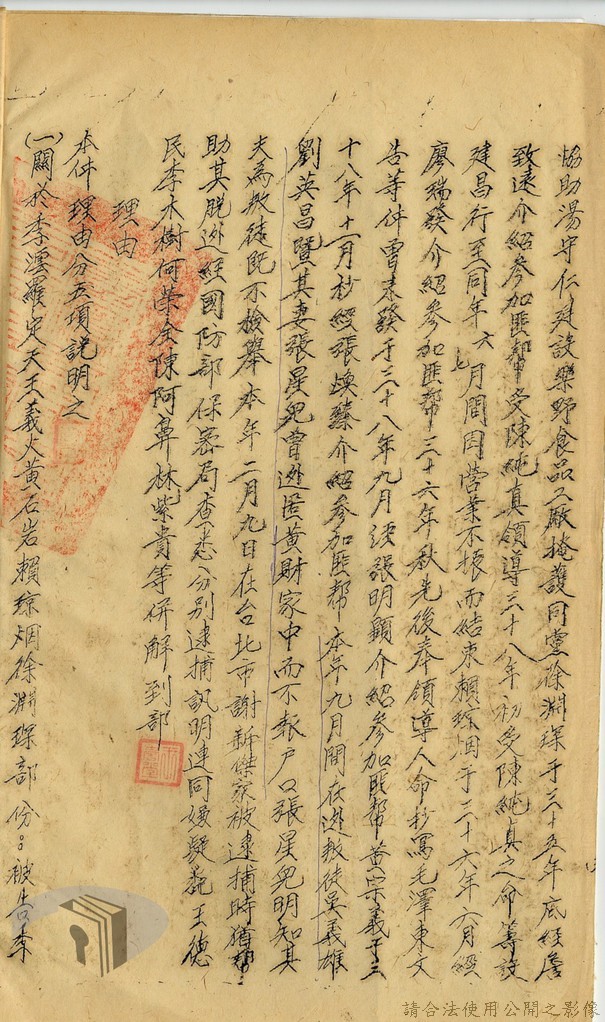 協助湯守仁建設樂野食品工廠掩護同黨徐淵琛于三十五年底經詹
致遠介紹參加匪幫受陳純真領導三十八年初受陳純真之命籌設
建昌行至同年六七月間因營業不振而結束賴琼烟于三十六年六月經
廖瑞發介紹參加匪幫三十六年秋先後奉領導人命抄寫毛澤東文
告等件曹來發于三十八年九月決張明顯介紹參加匪幫黃宗義于三
十八年十一月杪經張煥蘇介紹參加匪幫本年九月間在逃叛徒吳義雄
劉英昌暨其妻張星兒曾逃匿黃財家中而不報戶口張星兒明知其
夫為叛徒既不檢舉本年二月九日在台北市謝新傑家被逮捕時猶幫
助其脫逃經國防部保密局查悉分別逮捕訊明連同嫌疑王德
民李水樹何榮全陳阿鼻林紫貴等併解到部
理由
本件理由分五項說明之
(一)關於季澐羅定天王義火黃石岩賴琼烟徐淵琛部份：被告季
請合法使用公開之影像